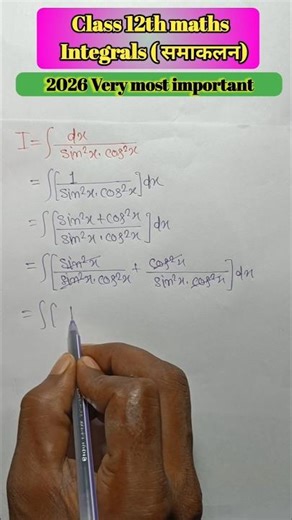 Class 12th maths
Integrals (समाकलन)
2026 Very most important
I = ∫ dx / sin²x · cos²x
= ∫[ 1 / sin²x · cos²x ] dx
= ∫[ sin²x + cos²x / sin²x · cos²x ] dx
= ∫[ sin²x / sin²x · cos²x + cos²x / sin²x · cos²x ] dx
= ∫[